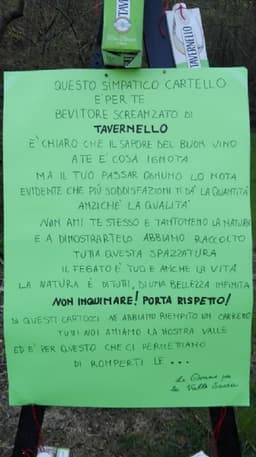 TAVERNELLO
TAVERNELLO
QUESTO SIMPATICO CARTELLO
E' PER TE
BEVITORE SCREANZATO DI
TAVERNELLO
E' CHIARO CHE IL SAPORE DEL BUON VINO
A TE E' COSA IGNOTA
MA IL TUO PASSAR OGNUNO LO NOTA
EVIDENTE CHE PIÙ SODDISFAZIONI TI DA' LA QUANTITÀ
ANZICHÈ LA QUALITA'
NON AMI TE STESSO E TANTOMENO LA NATURA
E A DIMOSTRARTELO ABBIAMO RACCOLTO
TUTTA QUESTA SPAZZATURA
IL FEGATO E' TUO E ANCHE LA VITA
LA NATURA E' DI TUTTI, DI UNA BELLEZZA INFINITA
NON INQUINARE! PORTA RISPETTO!
DI QUESTI CARTOCCI NE ABBIAMO RIEMPITO UN CARRETTO
TUTTI NOI AMIAMO LA NOSTRA VALLE
ED E' PER QUESTO CHE CI PERMETTIAMO
DI ROMPERTI LE ...
Le Donne per
la Valle